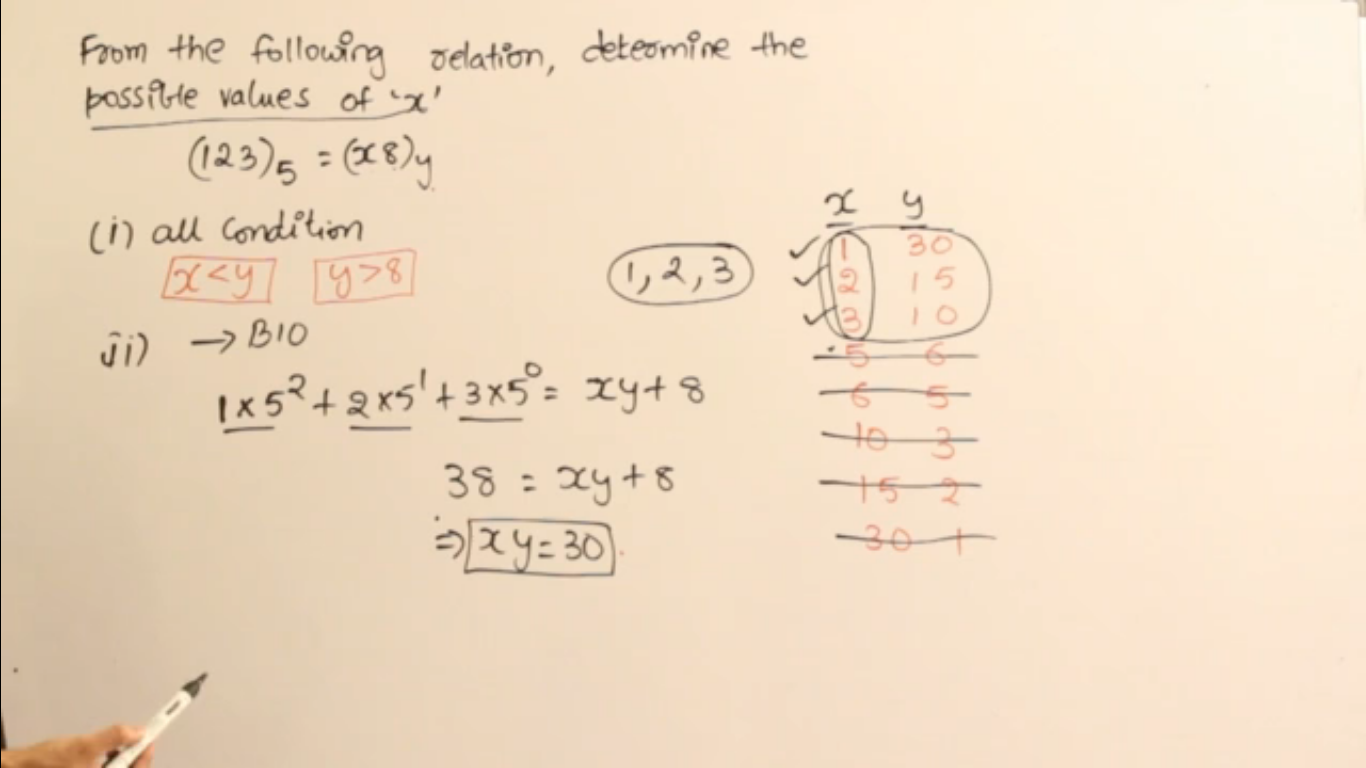 From the following relation, determine the
possible values of 'x'
(123)₅ = (x8)y
(i) all condition
x<y y>8
ii) → B10
1×5² + 2×5¹ + 3×5⁰ = xy+8
38 = xy+8
⇒ xy=30
1, 2, 3
x y
✓ 1 30
✓ 2 15
✓ 3 10
5 6
6 5
10 3
15 2
30 1